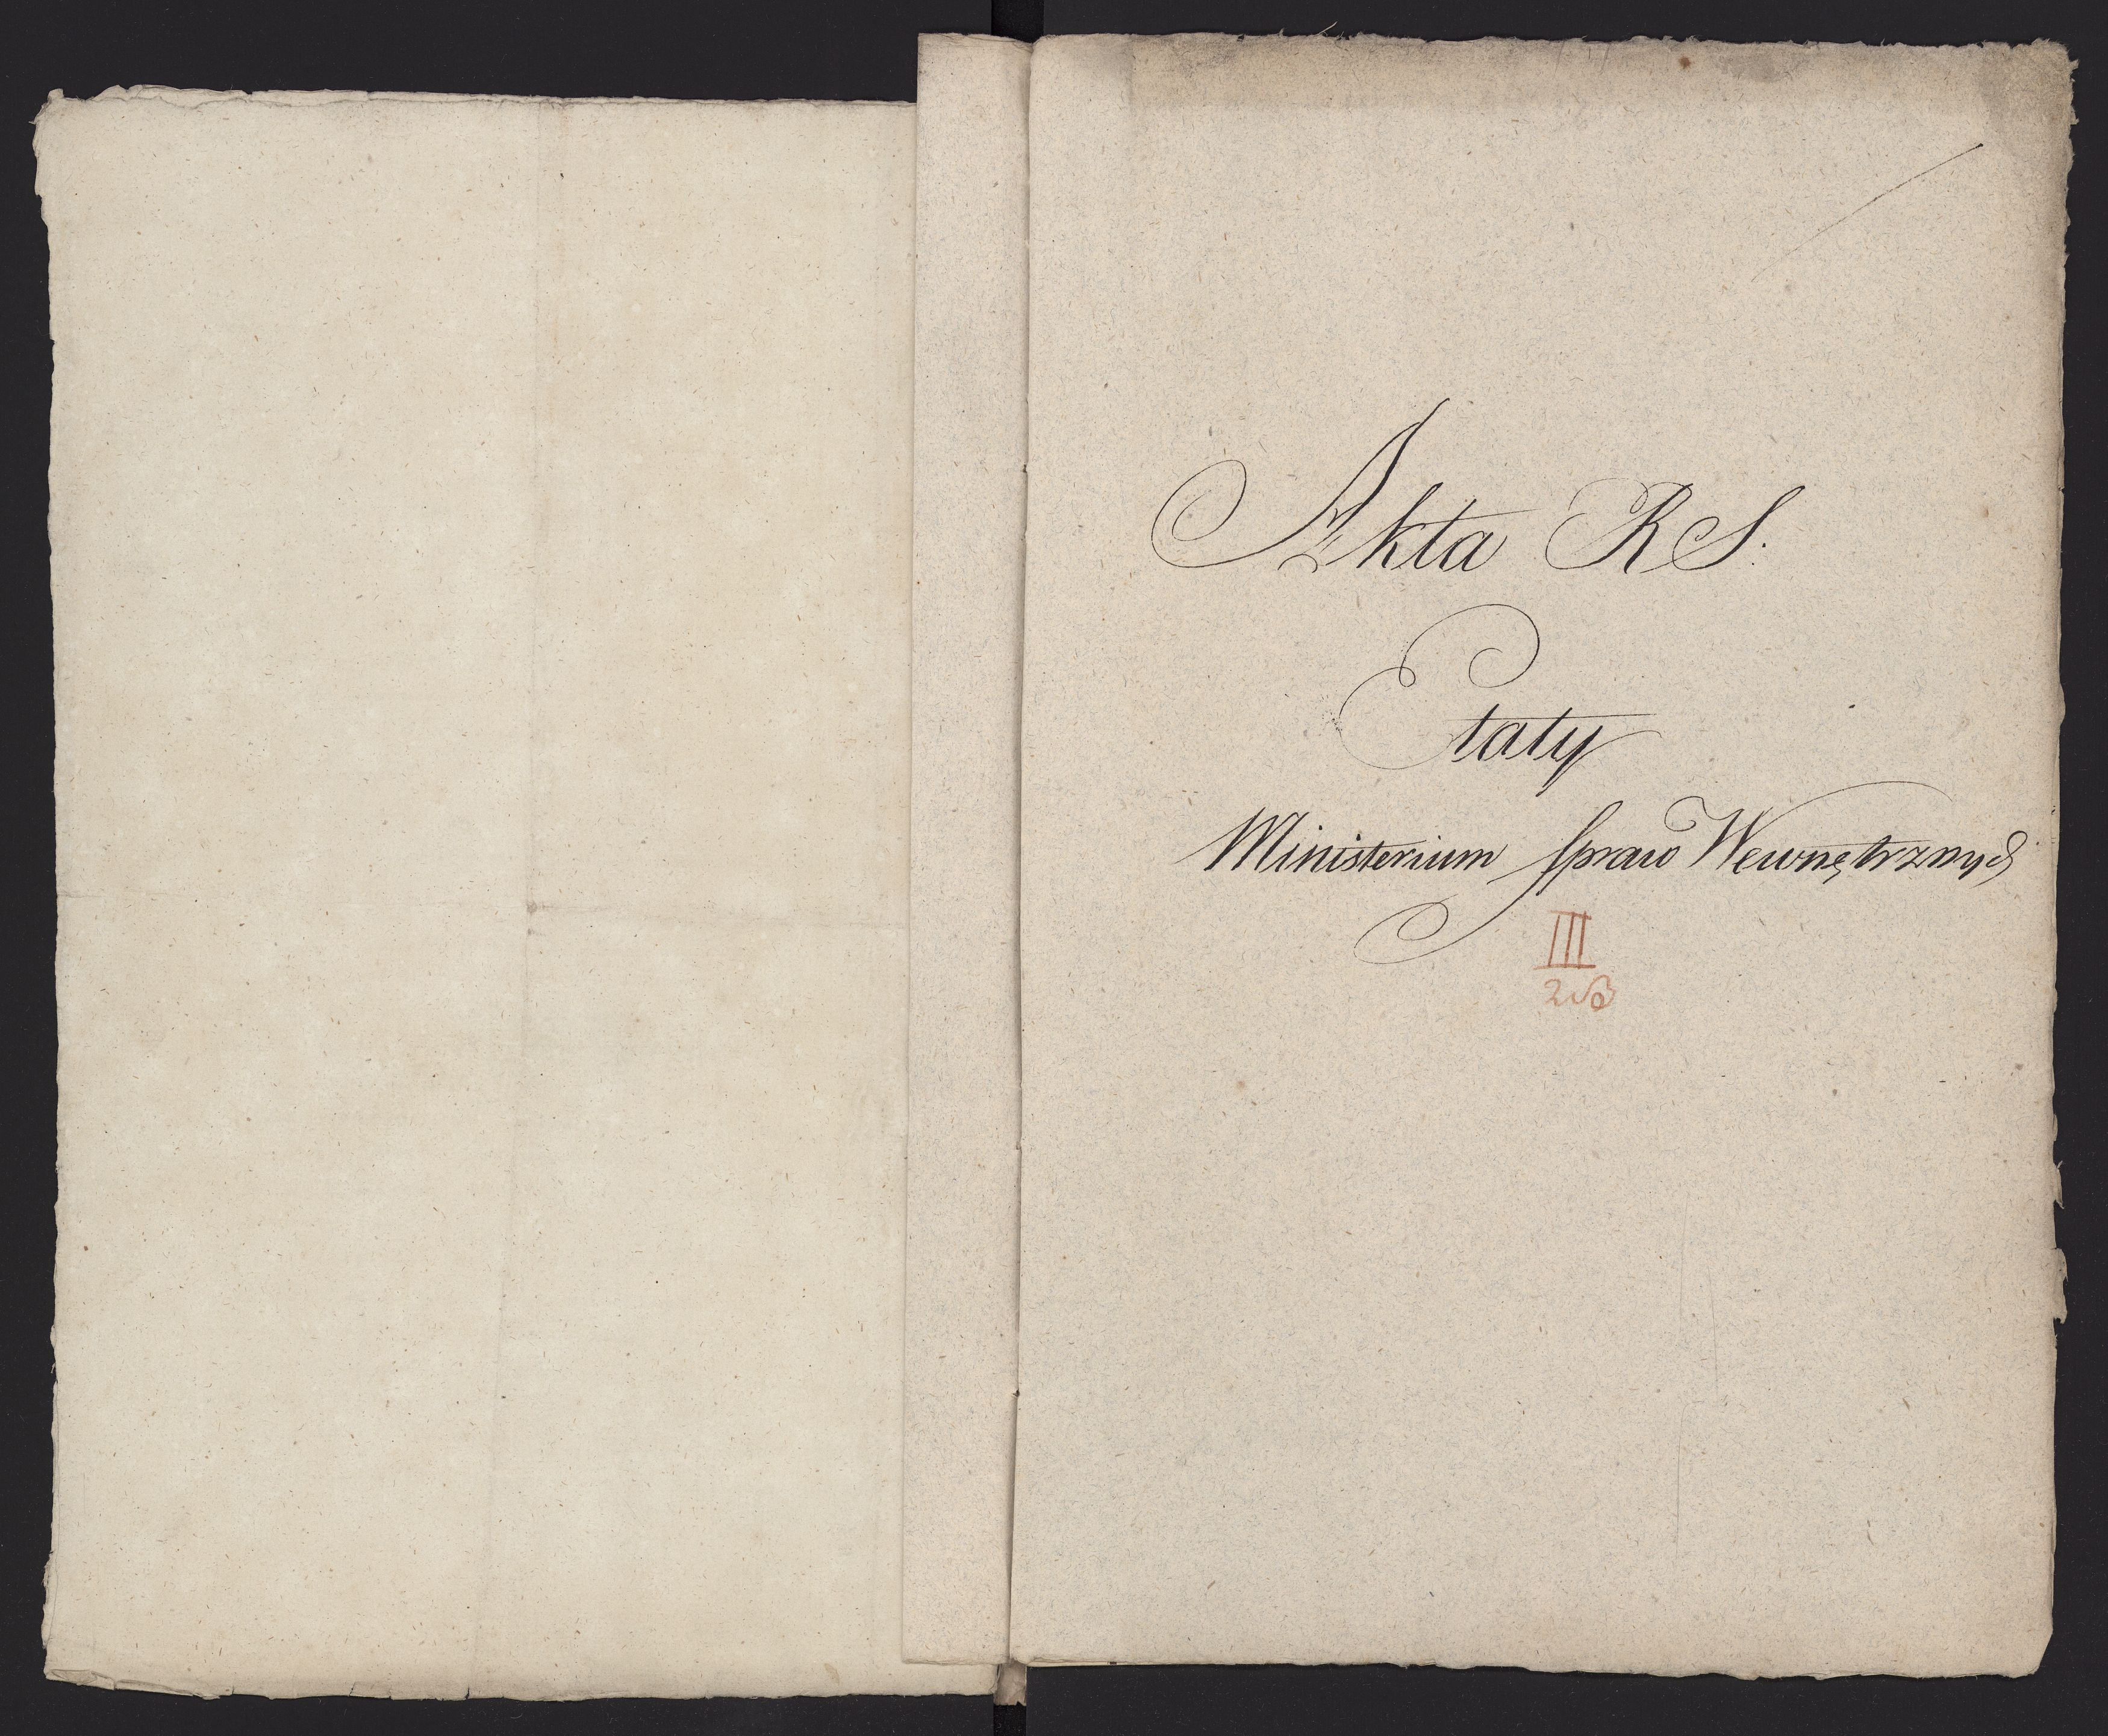 Akta RS:
Etaty
Ministerium Spraw Wewnętrznych
III